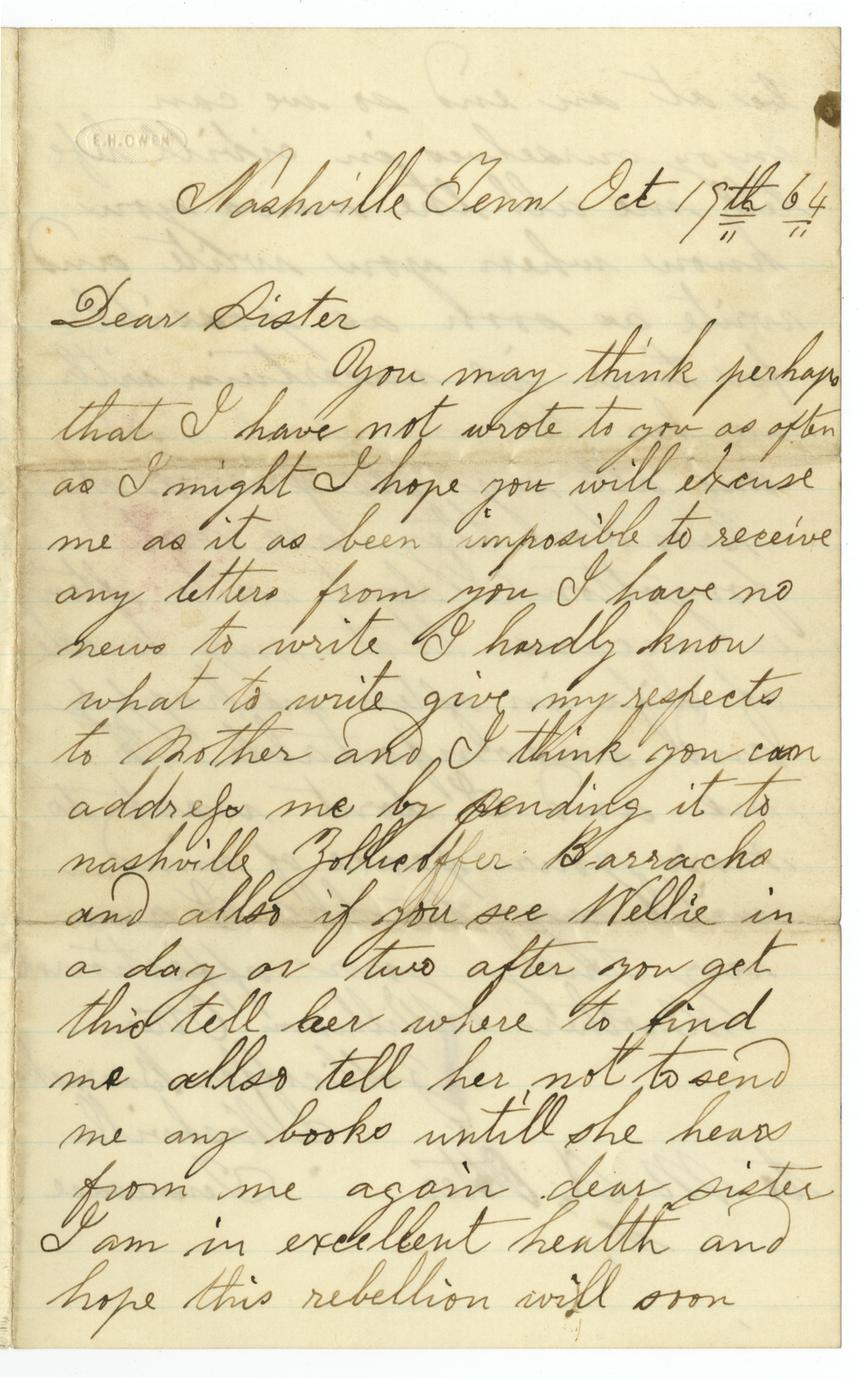 E.H.OWEN
Nashville Tenn Oct 19th 64
Dear Sister
You may think perhaps
that I have not wrote to you as often
as I might I hope you will excuse
me as it as been imposible to receive
any letters from you I have no
news to write I hardly know
what to write give my respects
to Mother and I think you can
address me by sending it to
nashville Zollicoffer Barracks
and allso if you see Wellie in
a day or two after you get
this tell her where to find
me allso tell her not to send
me any books untill she hears
from me again dear sister
I am in excellent health and
hope this rebellion will soon